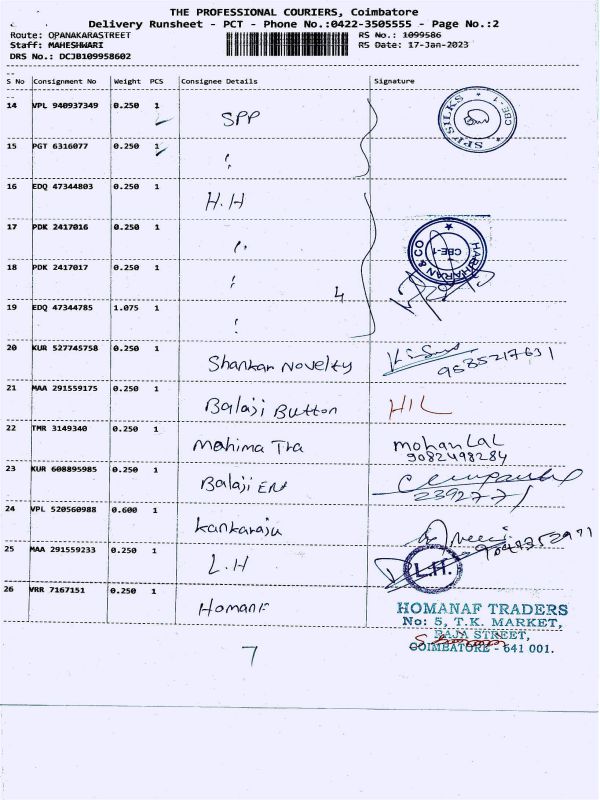 THE PROFESSIONAL COURIERS, Coimbatore
Delivery Runsheet - PCT - Phone No.:0422-3505555 - Page No.:2
Route: OPANAKARASTREET RS No.: 1099586
Staff: MAHESHWARI RS Date: 17-Jan-2023
DRS No.: DCJB109958602
S No Consignment No Weight PCS Consignee Details Signature
14 VPL 940937349 0.250 1 SPP
SPP SILKS * CBE-1 *
15 PGT 6316077 0.250 1 "
16 EDQ 47344803 0.250 1 H.H
17 PDK 2417016 0.250 1 "
HARIHARAN & CO ★ CBE-1
18 PDK 2417017 0.250 1 "
4
19 EDQ 47344785 1.075 1 "
20 KUR 527745758 0.250 1 Shankar Novelty
9585217631
21 MAA 291559175 0.250 1 Balaji Button HIL
22 TMR 3149340 0.250 1 Mahima Tra mohanlal
9082498284
23 KUR 608895985 0.250 1 Balaji Ent
2392771
24 VPL 520560988 0.600 1 Kankaraju
25 MAA 291559233 0.250 1 L.H
L.H.
26 VRR 7167151 0.250 1 Homanf
HOMANAF TRADERS
No: 5, T.K. MARKET,
RAJA STREET,
COIMBATORE - 641 001.
7